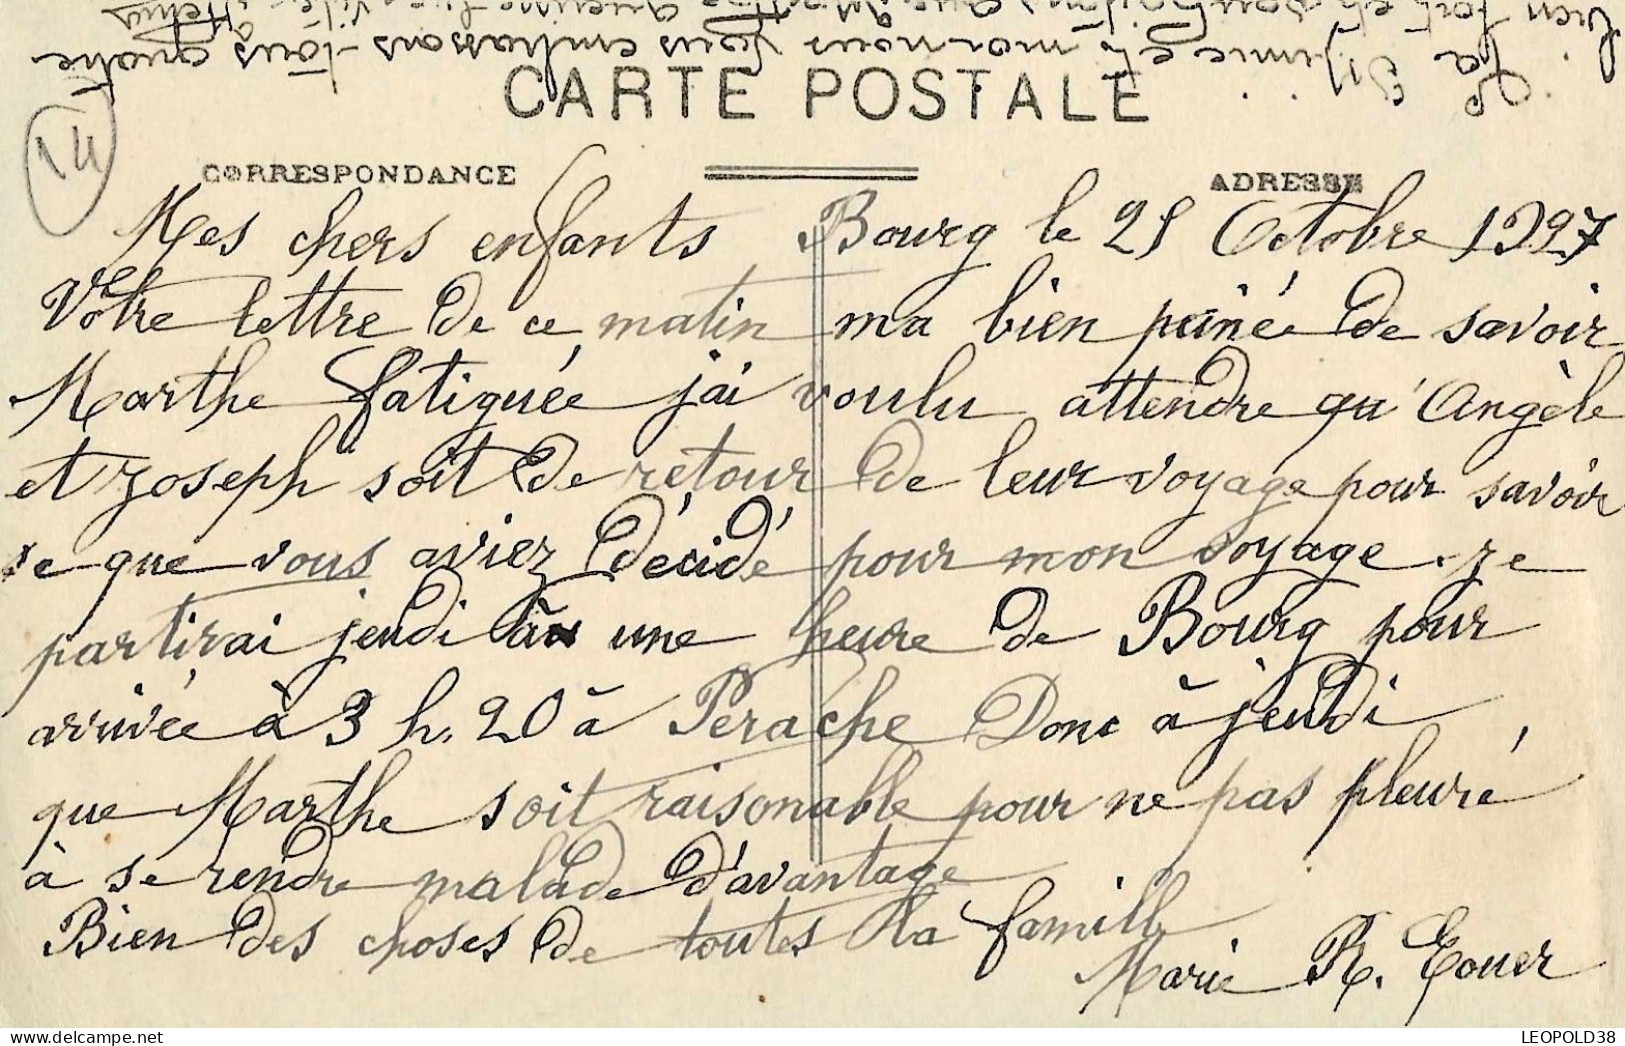 CARTE POSTALE
14
CORRESPONDANCE
ADRESSE
Mes chers enfants Bourg le 25 Octobre 1927
Votre lettre de ce matin ma bien peinée de savoir
Marthe fatiguée j'ai voulu attendre qu'Angèle
et Joseph soit de retour de leur voyage pour savoir
se que vous aviez décidé pour mon voyage. Je
partirai jeudi à une heure de Bourg pour
arrivée à 3 h. 20 à Perache Donc à jeudi,
que Marthe soit raisonable pour ne pas pleuré
à se rendre malade d'avantage
Bien des choses de toutes la famille
Marie R.
La Mimie et mornous vous embrassons tous quatre
bien fort et
LEOPOLD38